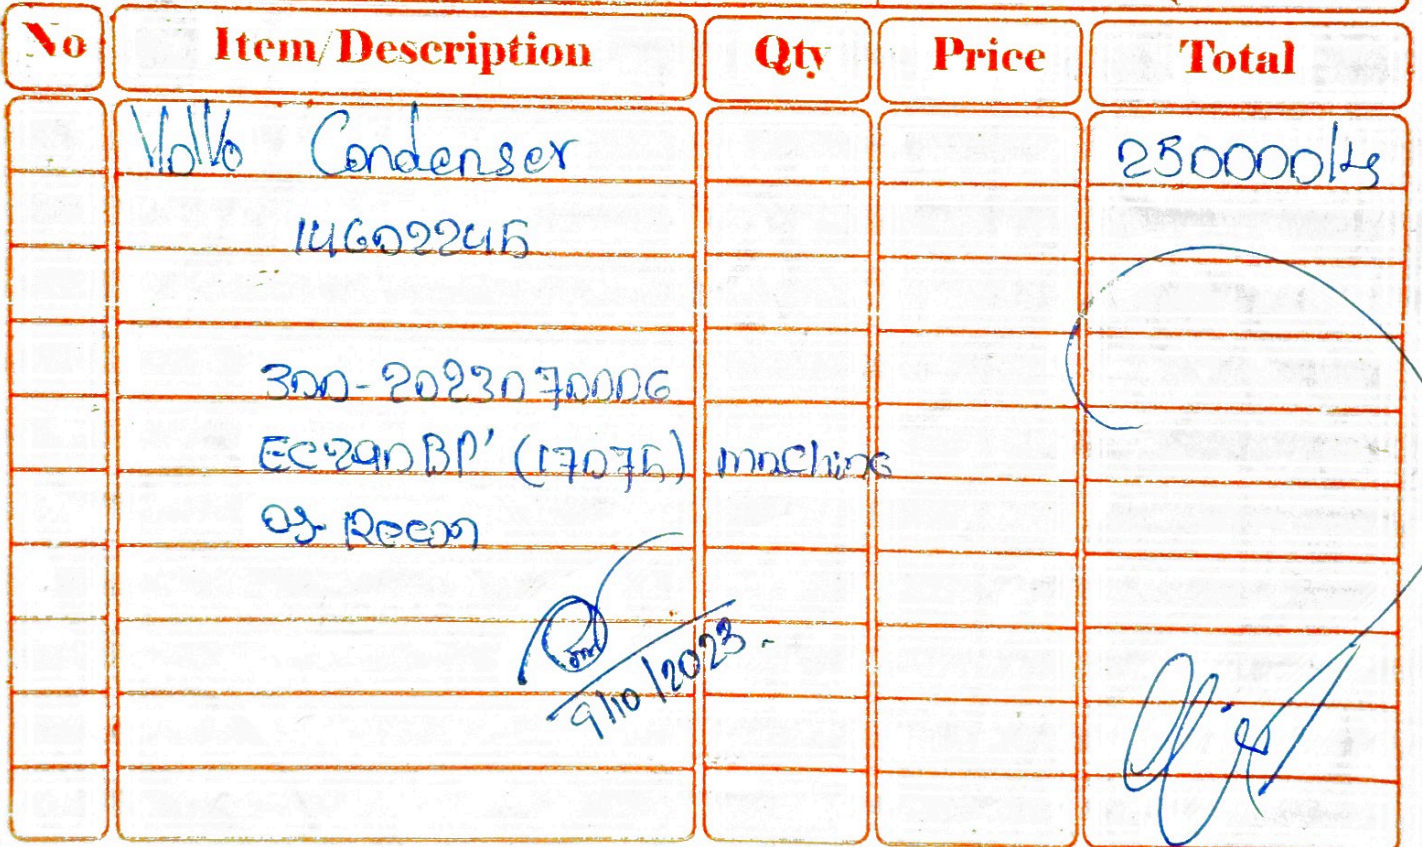 No Item/Description Qty Price Total
Volvo Condenser 250000/ks
14602245
300-2023070006
EC290BP' (17075) machine
of Reem
9/10/2023